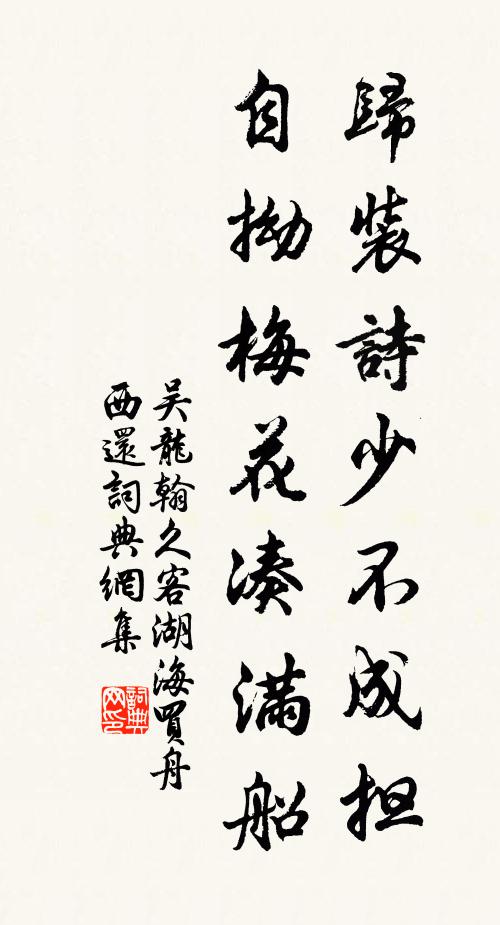 歸裝詩少不成担
自拗梅花凑滿船
吴龍翰久客湖海買舟
西還詞典網集
詞典
网印